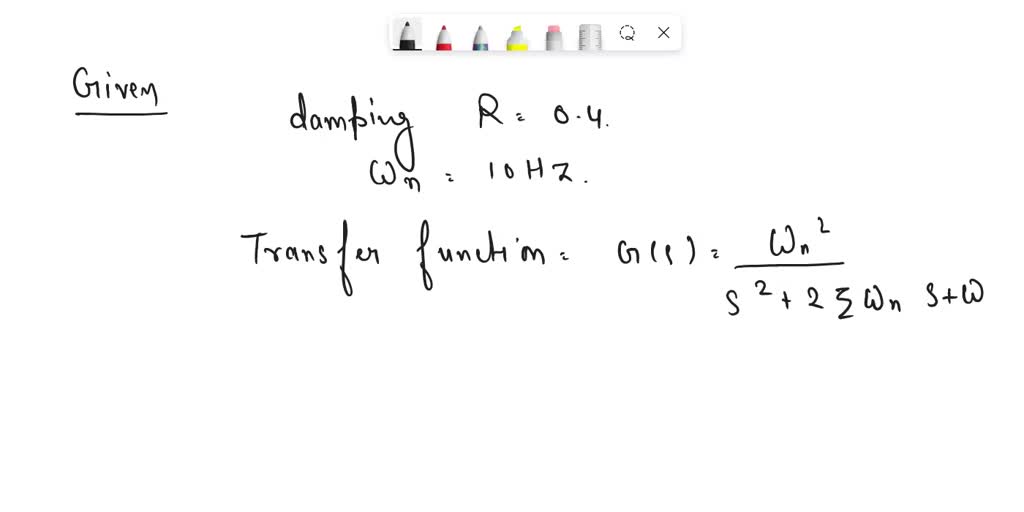 Given
damping R = 0.4.
ωn = 10HZ.
Transfer function = G(s) = ωn² / s² + 2 ξ ωn s+ω